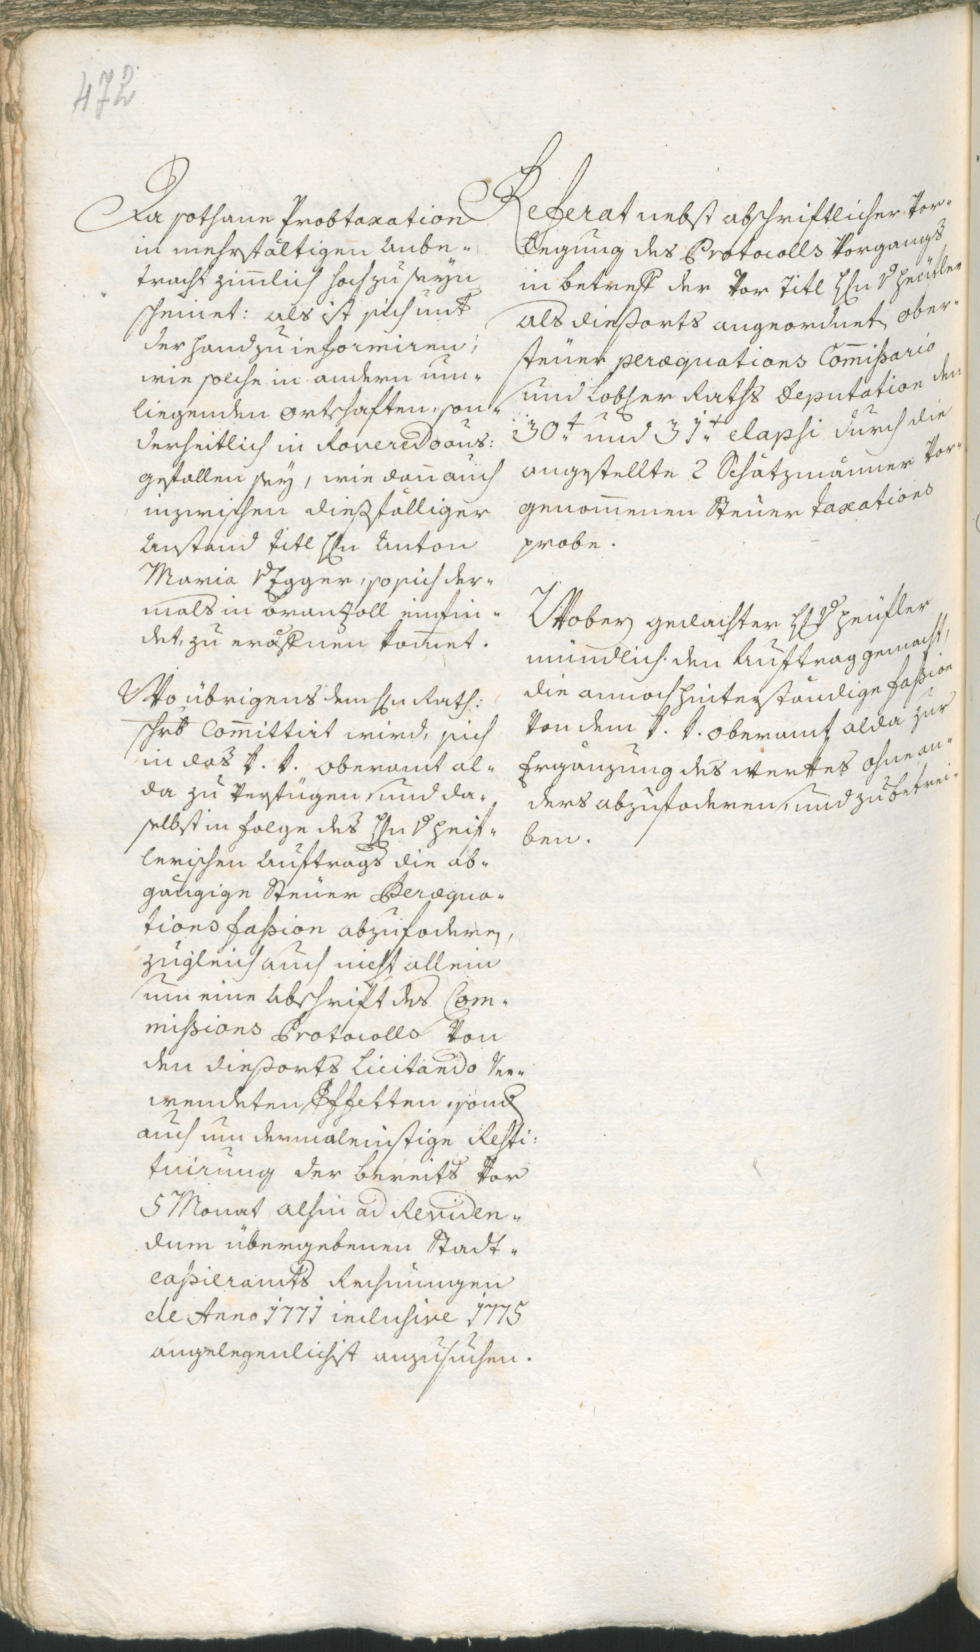 472
Da sothane Probtaxation
in mehrfältigen Anbe-
tracht zimmlich hoch zu seyn
scheinet: als ist sich unt
der hand zu informiren,
wie solche in andern um-
liegenden Ortschaften, son-
derheitlich in Roveredo aus:
gefallen sey, wie dan auch
inzwischen dießfälliger
Anstand Titl Hn Anton
Maria v Egger, so sich der-
mals in Branzoll einfin-
det, zu eröffnen kommet.
Wo übrigens dem Hn Rath:
schrb Committirt wird, sich
in das k. k. oberamt al-
da zu verfügen, und da-
selbst in folge des Hn v heif-
lerischen Auftrags die ab-
gängige Steuer Peræqua-
tions fassion abzufoderen,
zugleich auch nicht allein
um eine Abschrift des Com-
missions Protocolls von
den dießorts Licitando ver-
wendeten Effetten, sond
auch um dermaleinstige Resti:
tuirung der bereits vor
5 Monat alhin ad Reviden-
dum übergebenen Stadt-
cassieramts Rechnungen
de Anno 1771 inclusive 1775
angelegenlichst anzusuchen.
Referat nebst abschriftlicher Vor-
legung des Protocolls Vorgangs
in betreff der vor Titl Hn v heufler
als dießorts angeordnet ober-
steuer peræquations Commissario
und Lobher Raths Deputation den
30t und 31t elapsi durch die
angestellte 2 Schätzmänner vor-
genommenen Steuer taxations
probe.
Wobey gedachter H v heufler
mündlich den Auftrag gemacht,
die annoch hinterständige fassion
von dem k. k. oberamt alda zur
Ergänzung des werkes ohne an-
ders abzufoderen, und zu betrei-
ben.